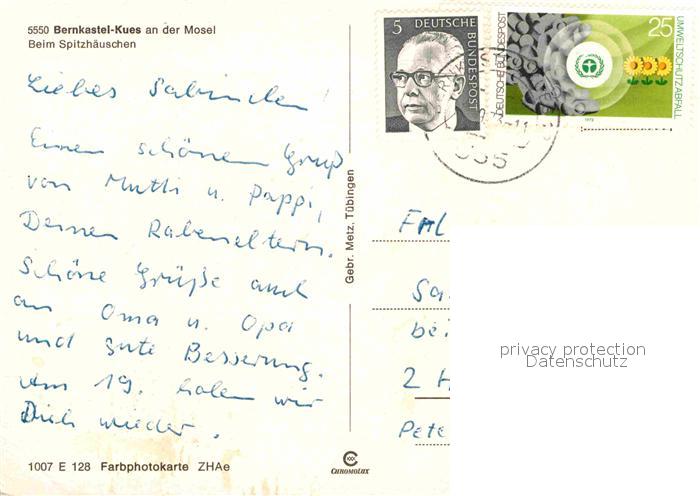 5550 Bernkastel-Kues an der Mosel
Beim Spitzhäuschen
5
DEUTSCHE
BUNDESPOST
25
DEUTSCHE BUNDESPOST
UMWELTSCHUTZ:ABFALL
1973
555
Liebes Sabinchen!
Einen schönen Gruß
von Mutti u. Pappi,
Deinen Rabeneltern.
Schöne Grüße auch
an Oma u. Opa
und gute Besserung.
Am 19. holen wir
Dich wieder.
Gebr. Metz, Tübingen
Frl
Sa
bei
2 H
Pete
privacy protection
Datenschutz
1007 E 128 Farbphotokarte ZHAe
CHROMOLUX